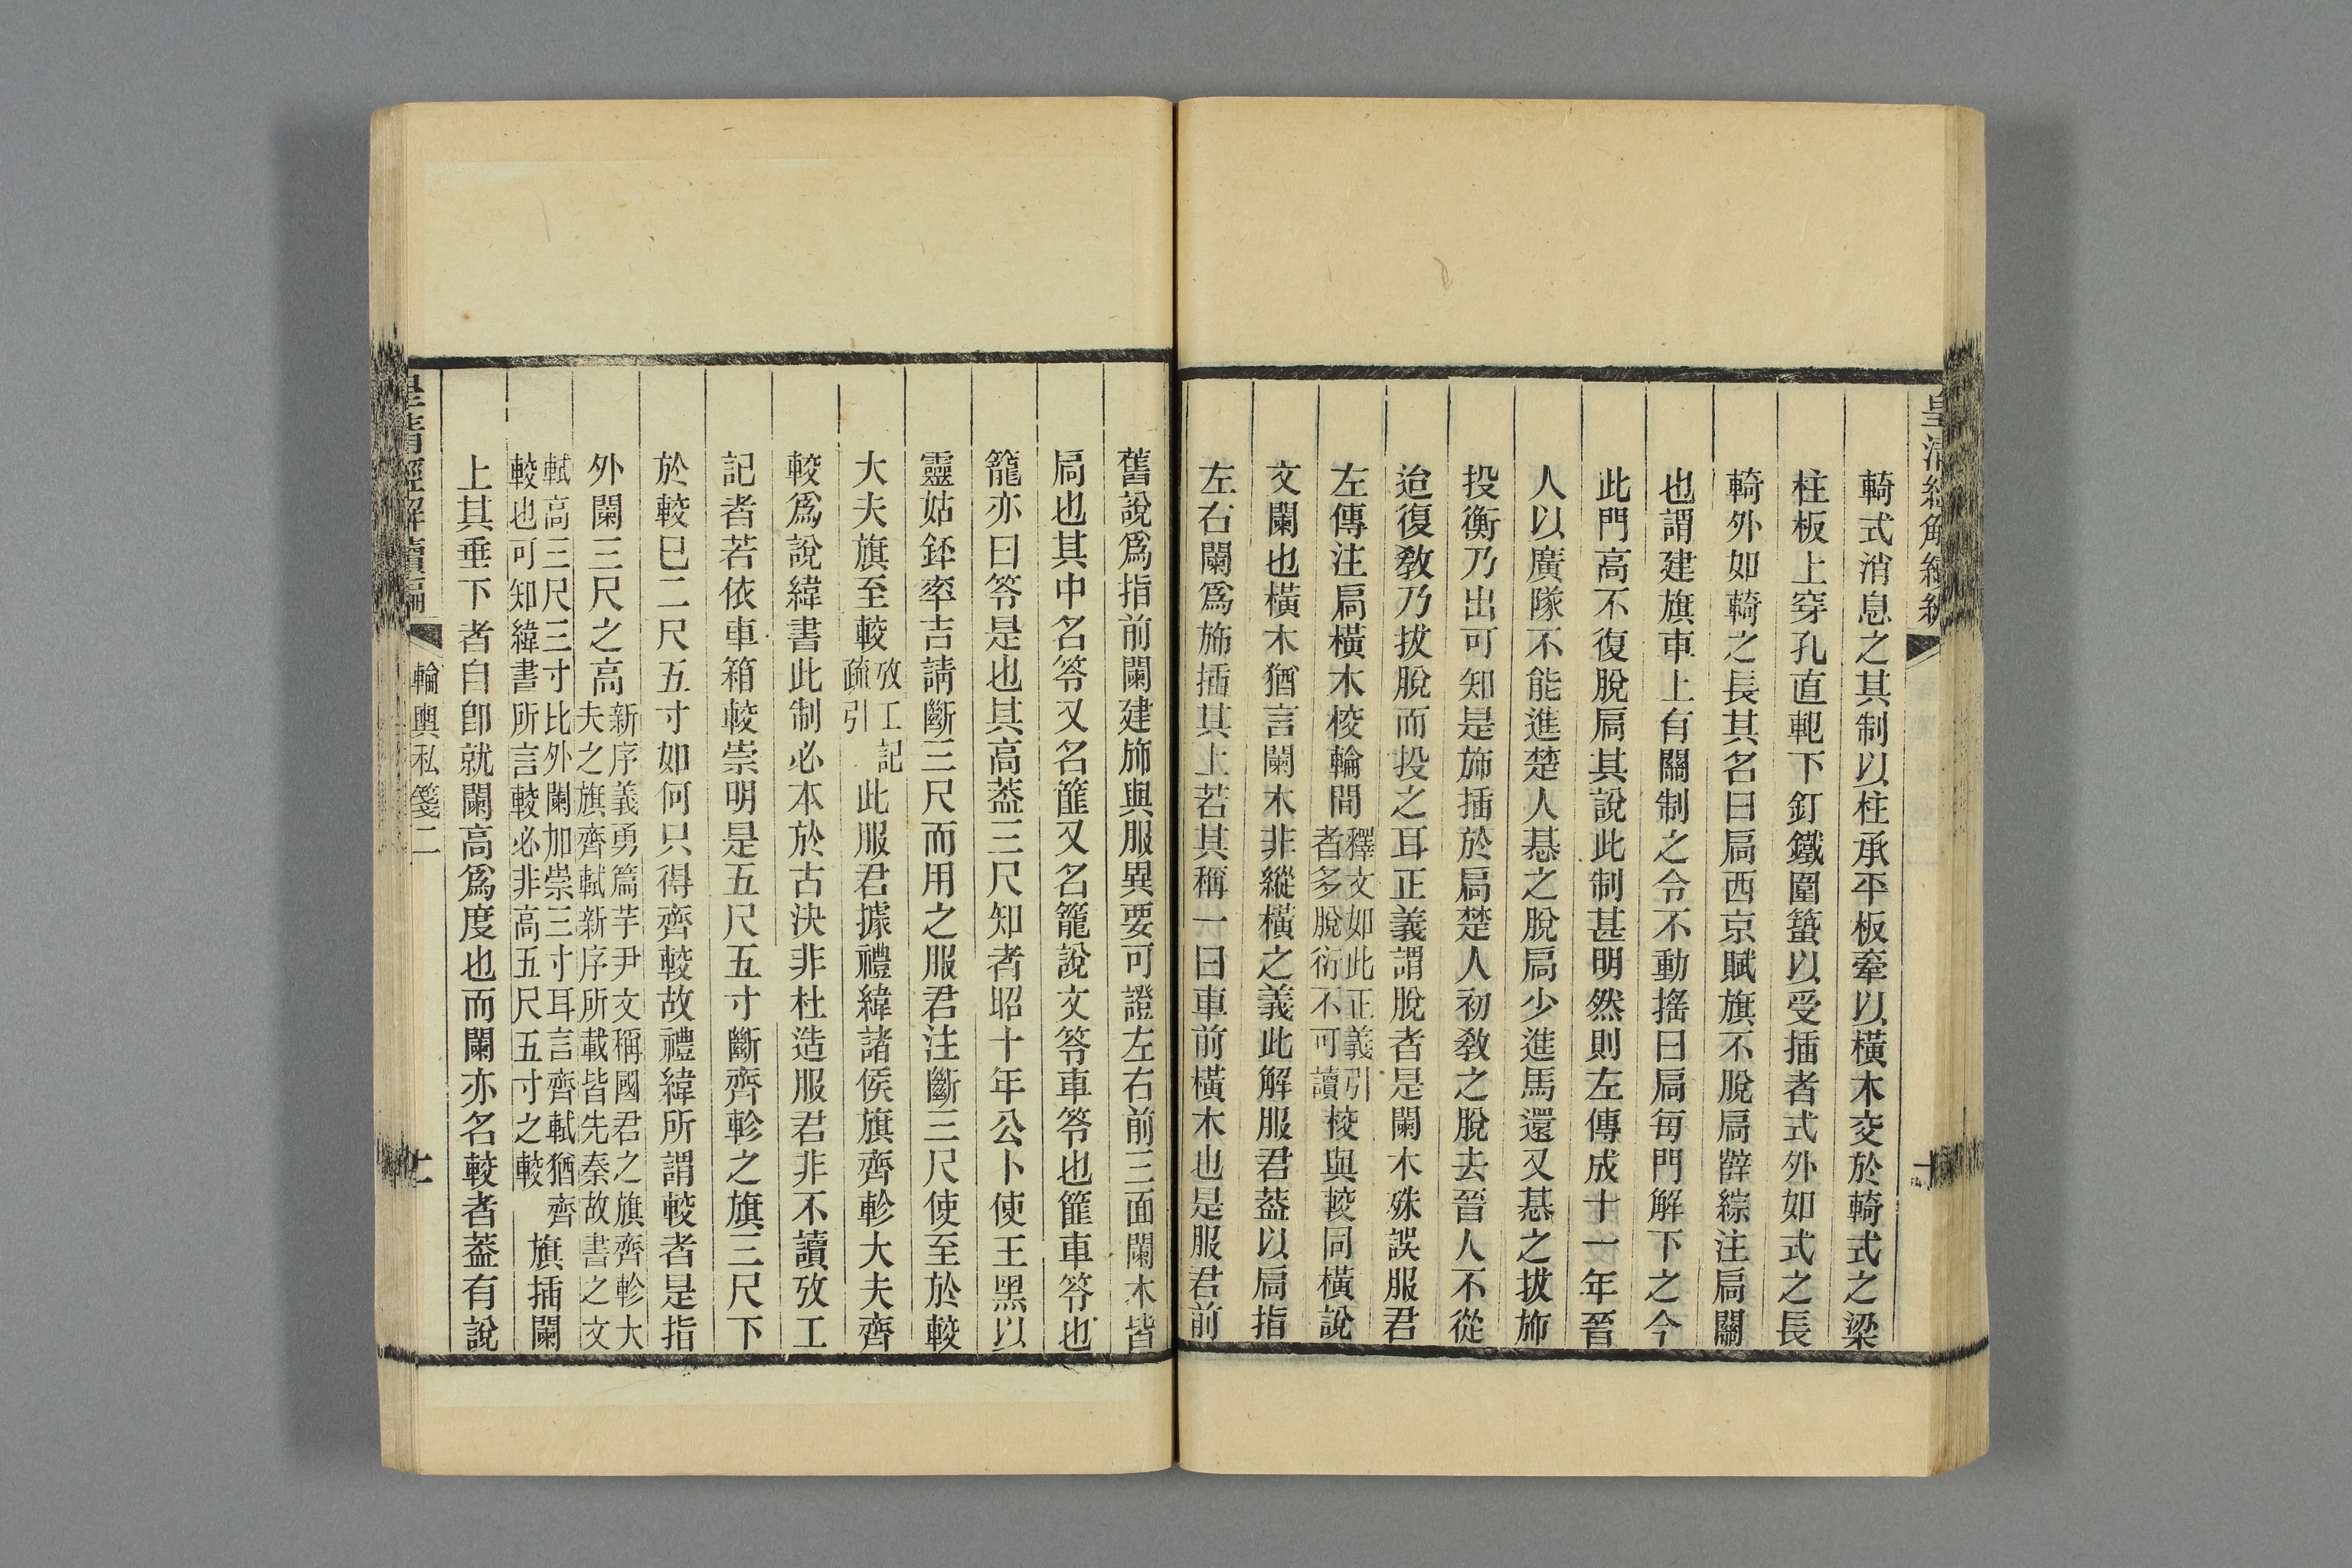 輢式消息之其制以柱承平板牽以橫木交於輢式之梁
柱板上穿孔直軓下釘鐵圍䥫以受插者式外如式之長
輢外如輢之長其名曰扃西京賦旗不脫扃薛綜注扃關
也謂建旗車上有關制之令不動搖曰扃每門解下之今
此門高不復脫扃其說此制甚明然則左傳成十一年晉
人以廣隊不能進楚人惎之脫扃少進馬還又惎之拔斾
投衡乃出可知是斾插於扃楚人初敎之脫去晉人不從
迨復敎乃拔脫而投之耳正義謂脫者是闌木殊誤服君
左傳注扃橫木㭺輪間釋文如此正義引者多脫衍不可讀㭺與較同橫說
文闌也橫木猶言闌木非縱橫之義此解服君葢以扃指
左右闌爲斾插其上若其稱一曰車前橫木也是服君前
舊說爲指前闌建斾與服異要可證左右前三面闌木皆
扃也其中名笭又名䈜又名籠說文笭車笭也䈜車笭也
籠亦曰笭是也其高葢三尺知者昭十年公卜使王黑以
靈姑銔率吉請斷三尺而用之服君注斷三尺使至於較
大夫旗至較攷工記疏引此服君據禮緯諸侯旗齊軫大夫齊
較爲說緯書此制必本於古決非杜造服君非不讀攷工
記者若依車箱較崇明是五尺五寸斷齊軫之旗三尺下
於較巳二尺五寸如何只得齊較故禮緯所謂較者是指
外闌三尺之高新序義勇篇芋尹文稱國君之旗齊軫大夫之旗齊軾新序所載皆先秦故書之文
軾高三尺三寸比外闌加崇三寸耳言齊軾猶齊較也可知緯書所言較必非高五尺五寸之較旗插闌
上其垂下者自卽就闌高爲度也而闌亦名較者葢有說
輪輿私箋二